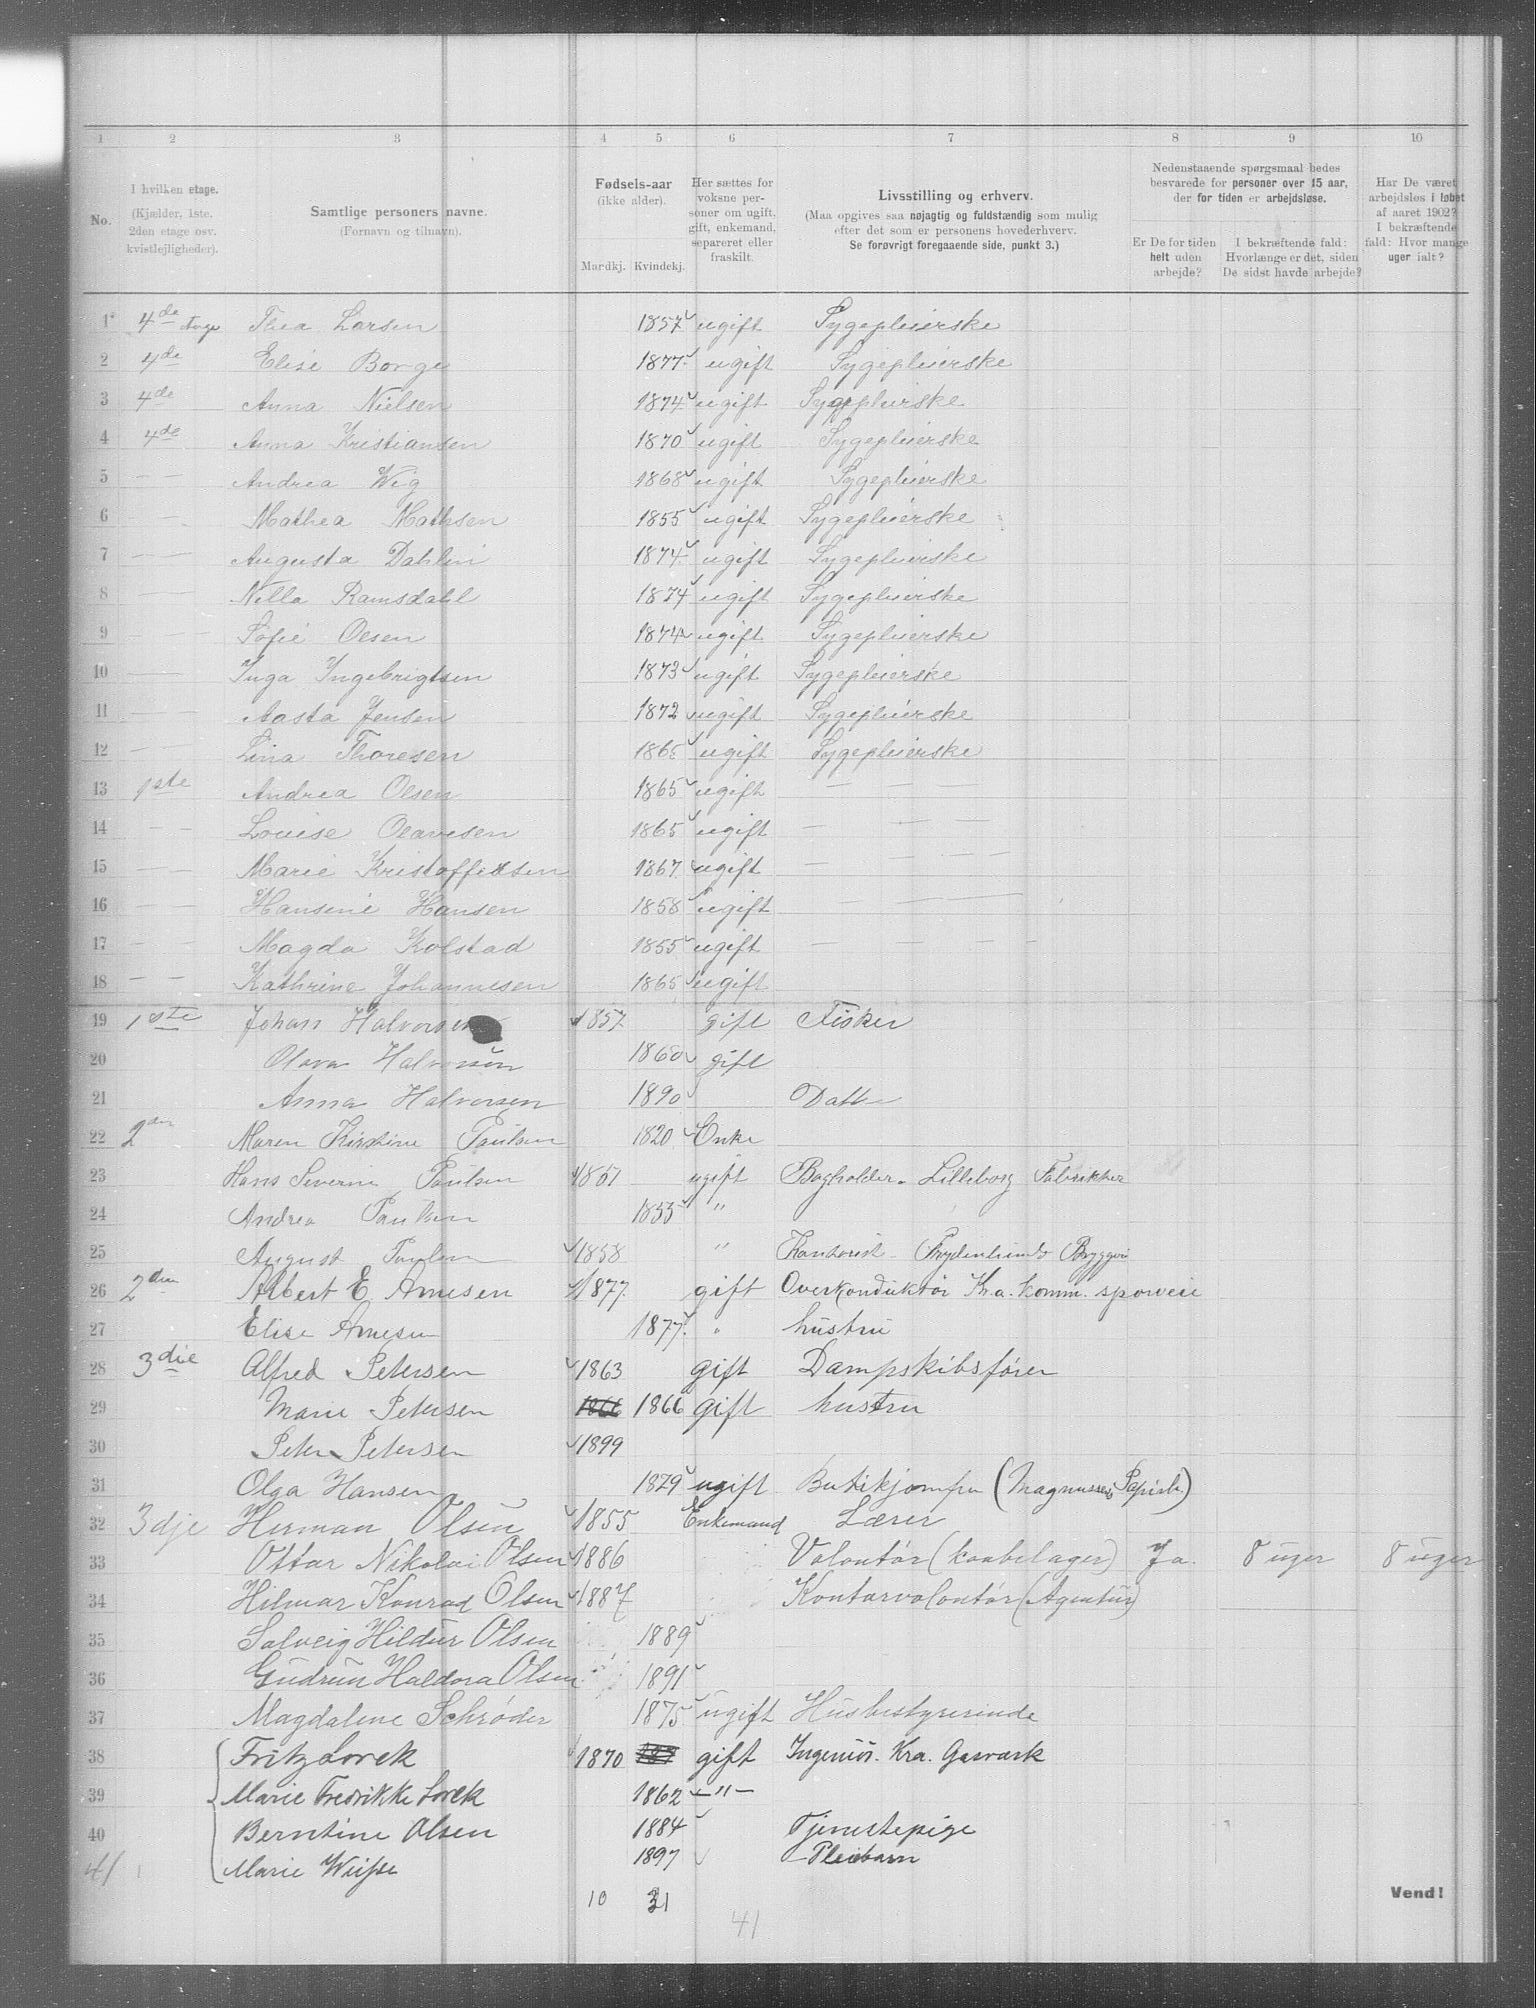 1 2 3 4 5 6 7 8 9 10
No.
I hvilken etage. (Kjælder, 1ste. 2den etage osv. kvistlejligheder).
Samtlige personers navne. (Fornavn og tilnavn).
Fødsels-aar (ikke alder). Mandkj. Kvindekj.
Her sættes for voksne personer om ugift, gift, enkemand, separeret eller fraskilt.
Livsstilling og erhverv. (Maa opgives saa nøjagtig og fuldstændig som mulig efter det som er personens hovederhverv. Se forøvrigt foregaaende side, punkt 3.)
Nedenstaaende spørgsmaal bedes besvarede for personer over 15 aar, der for tiden er arbejdsløse.
Er De for tiden helt uden arbejde?
I bekræftende fald: Hvorlænge er det, siden De sidst havde arbejde?
Har De været arbejdsløs i løbet af aaret 1902? I bekræftende fald: Hvor mange uger ialt?
1 4de etage Thea Larsen 1857 ugift Sygepleierske
2 4de Elise Borge 1877 ugift Sygepleierske
3 4de Anna Nielsen 1874 ugift Sygepleierske
4 4de Anna Kristiansen 1870 ugift Sygepleierske
5 — — Andrea Wig 1868 ugift Sygepleierske
6 — — Mathea Mathsen 1855 ugift Sygepleierske
7 — — Augusta Dahlin 1874 ugift Sygepleierske
8 — — Nilla Ramsdahl 1874 ugift Sygepleierske
9 — — Sofie Olsen 1874 ugift Sygepleierske
10 — — Inga Ingebrigtsen 1873 ugift Sygepleierske
11 — — Aasta Jensen 1872 ugift Sygepleierske
12 — — Lina Thoresen 1865 ugift Sygepleierske
13 1ste Andrea Olsen 1865 ugift — — —
14 — — Louise Olavesen 1865 ugift — — —
15 — — Marie Kristoffersen 1867 ugift — — —
16 — — Hansine Hansen 1858 ugift — — —
17 — — Magda Kolstad 1855 ugift — — —
18 — — Kathrine Johannesen 1865 ugift
19 1ste Johan Halvorsen 1857 gift Fisker
20 Olava Halvorsen 1860 gift
21 Anna Halvorsen 1890 Datter
22 2den Maren Kirstine Paulsen 1820 Enke
23 Hans Severin Paulsen 1851 ugift Bogholder. Lilleborg Fabrikker
24 Andrea Paulsen 1855 "
25 August Paulsen 1858 " Kontorist - Frydenlunds Bryggeri
26 2den Albert E. Arnesen 1877 gift Overkonduktør Kra. komm. sporveie
27 Elise Arnesen 1877 " hustru
28 3die Alfred Petersen 1863 gift Dampskibsfører
29 Marie Petersen 1866 1866 gift hustru
30 Peter Petersen 1899
31 Olga Hansen 1879 ugift Butikjomfru (Magnussens Papirh.)
32 3dje Herman Olsen 1855 Enkemand Lærer
33 Ottar Nikolai Olsen 1886 Volontør (kaabelager) Ja. 8 uger 8 uger
34 Hilmar Konrad Olsen 1887 Kontorvolontør (Agentur)
35 Solveig Hildur Olsen 1889
36 Gudrun Haldora Olsen 1891
37 Magdalene Schrøder 1875 ugift Husbestyrerinde
38 Fritz Lorck 1870 gift Ingeniör. Kra. Gasværk
39 Marie Fredrikke Lorck 1862 —"—
40 Berntine Olsen 1884 Tjenestepige
41 Marie 1897 Pleiebarn
10 31
41
Vend!